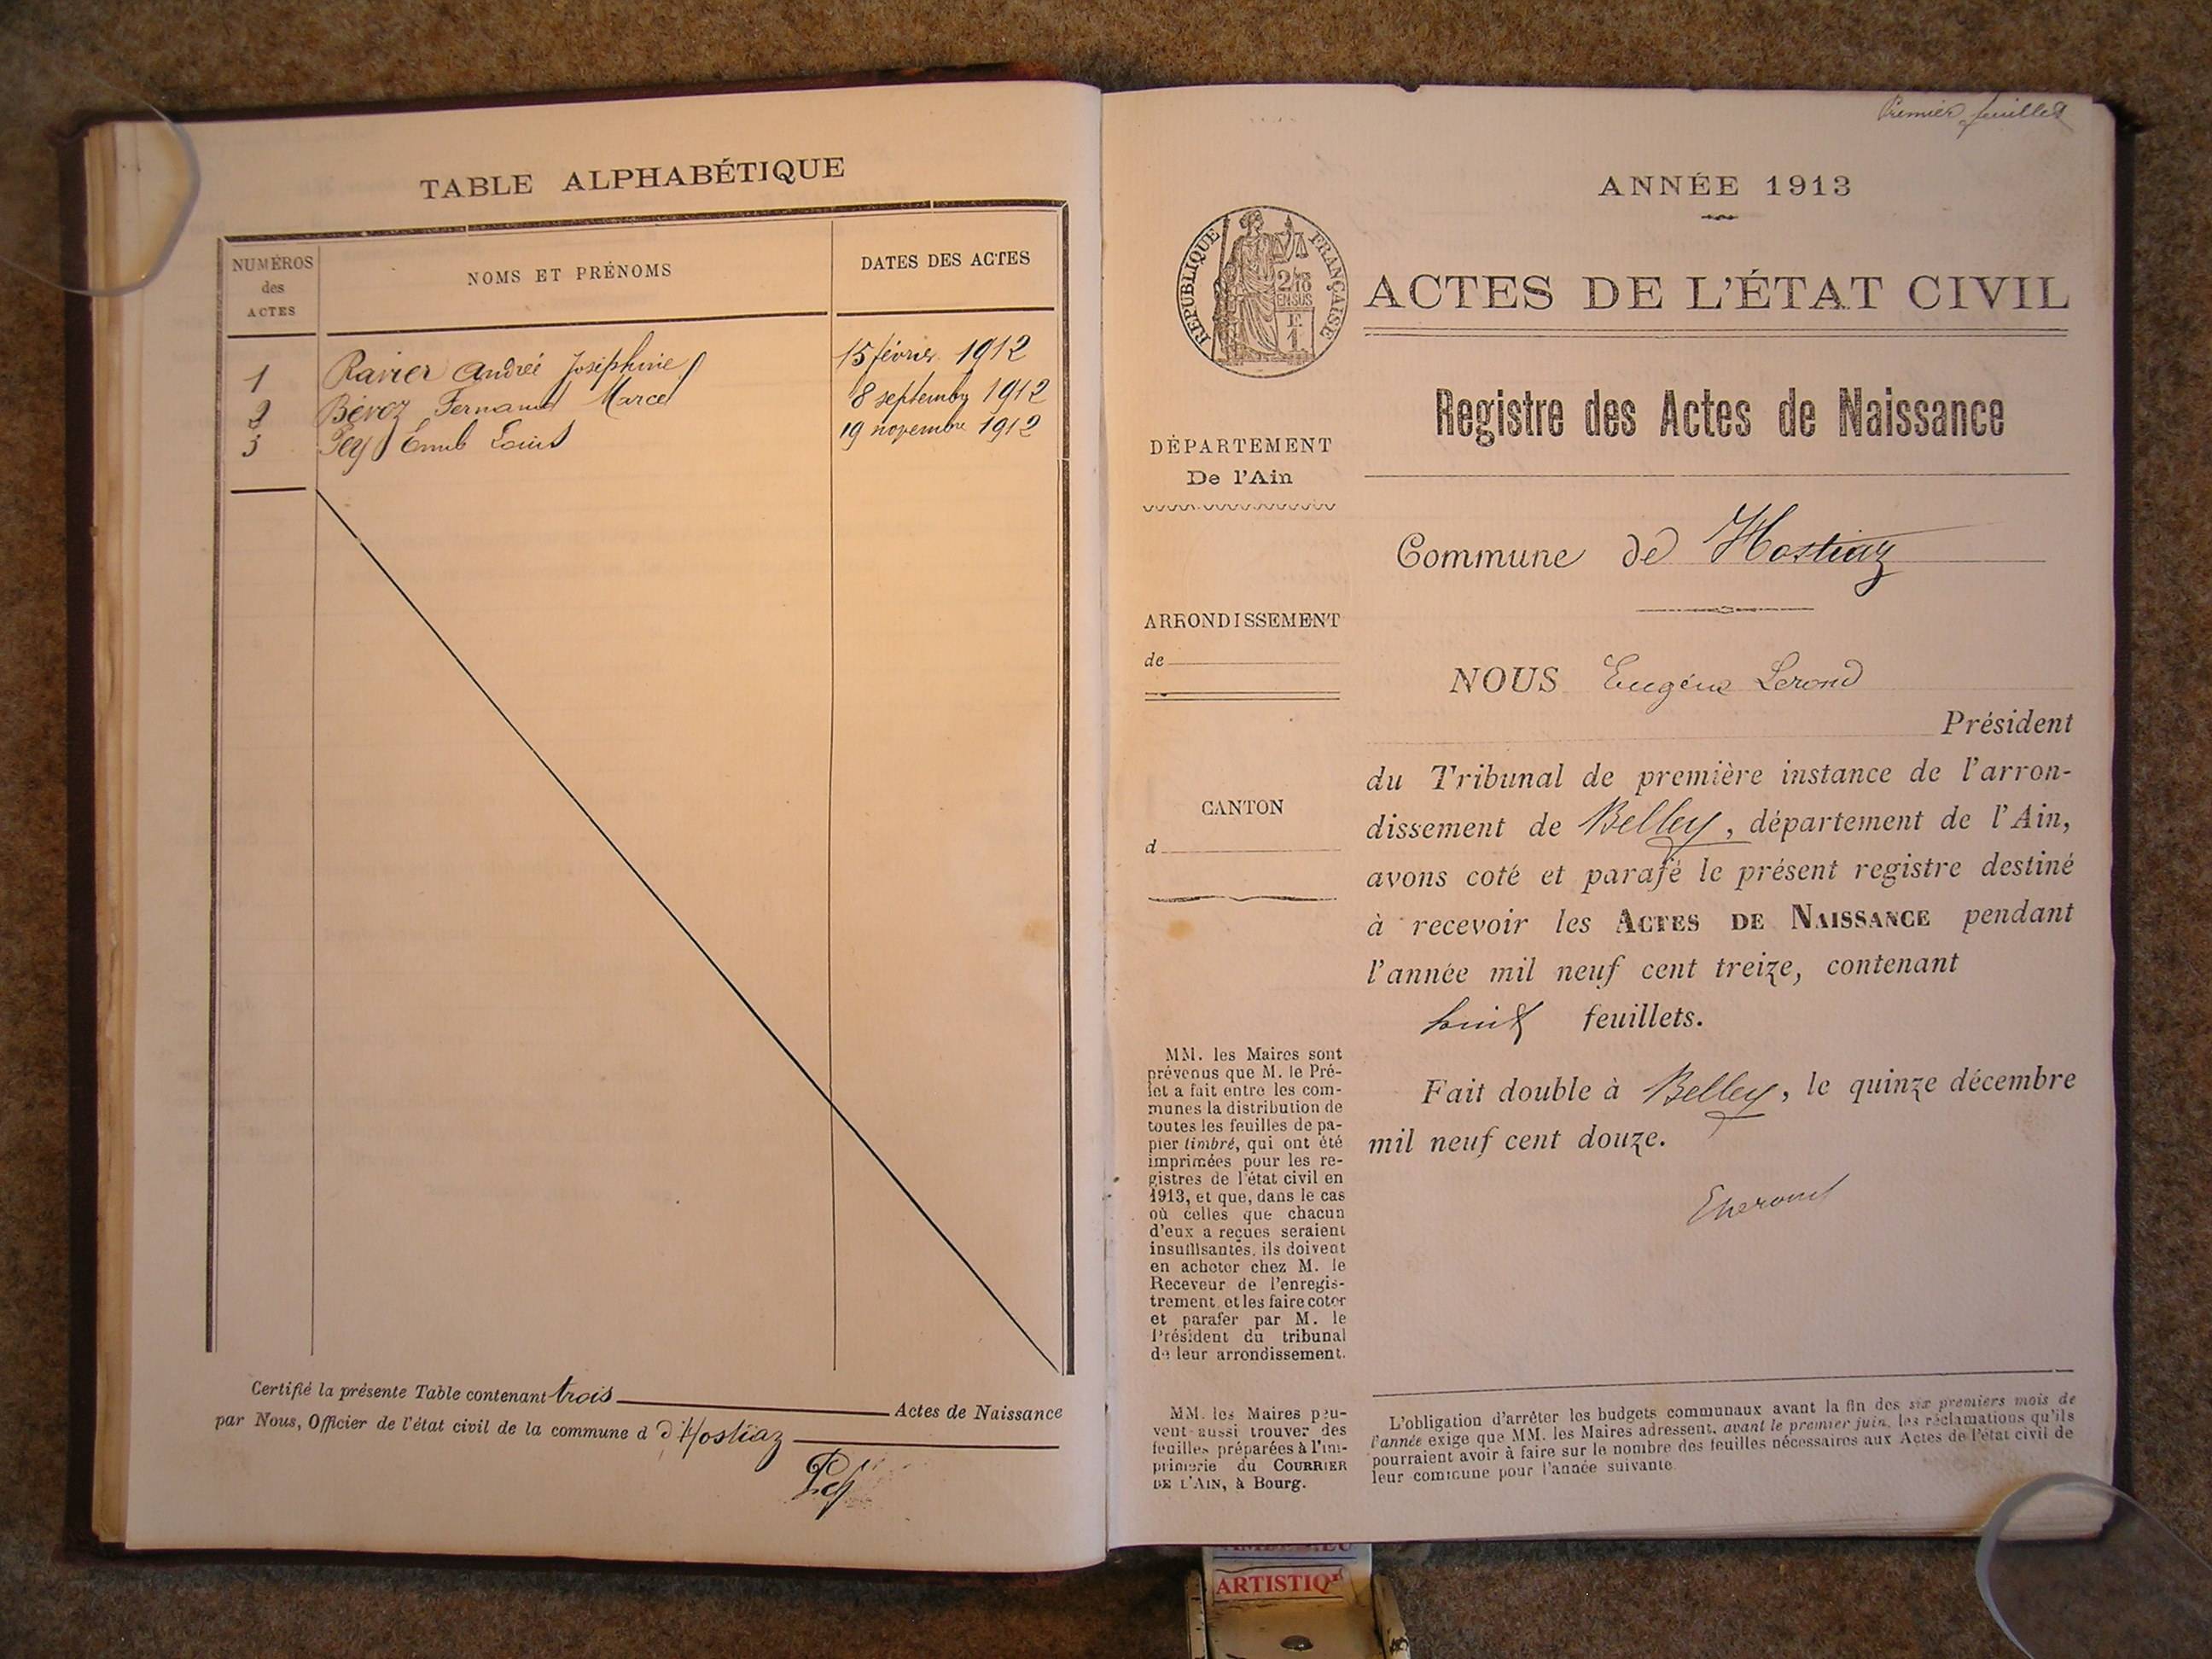 TABLE ALPHABÉTIQUE
NUMÉROS des ACTES
NOMS ET PRÉNOMS
DATES DES ACTES
1 Ravier Andrée Joséphine 15 février 1912
2 Béroz Fernand Marcel 8 septembre 1912
3 Pey Emile Louis 19 novembre 1912
Certifié la présente Table contenant trois Actes de Naissance
par Nous, Officier de l'état civil de la commune d d'Hostiaz
Premier feuillet
ANNÉE 1913
RÉPUBLIQUE FRANÇAISE
2/10
EN SUS
1
ACTES DE L'ÉTAT CIVIL
Registre des Actes de Naissance
DÉPARTEMENT
De l'Ain
Commune de Hostiaz
ARRONDISSEMENT
de
CANTON
d
NOUS Eugène Lerond
Président
du Tribunal de première instance de l'arron-
dissement de Belley, département de l'Ain,
avons coté et parafé le présent registre destiné
à recevoir les ACTES DE NAISSANCE pendant
l'année mil neuf cent treize, contenant
huit feuillets.
Fait double à Belley, le quinze décembre
mil neuf cent douze.
MM. les Maires sont
prévenus que M. le Pré-
fet a fait entre les com-
munes la distribution de
toutes les feuilles de pa-
pier timbré, qui ont été
imprimées pour les re-
gistres de l'état civil en
1913, et que, dans le cas
où celles que chacun
d'eux a reçues seraient
insuffisantes, ils doivent
en acheter chez M. le
Receveur de l'enregis-
trement, et les faire coter
et parafer par M. le
Président du tribunal
de leur arrondissement.
MM. les Maires peu-
vent aussi trouver des
feuilles préparées à l'im-
primerie du COURRIER
DE L'AIN, à Bourg.
L'obligation d'arrêter les budgets communaux avant la fin des six premiers mois de
l'année exige que MM. les Maires adressent, avant le premier juin, les réclamations qu'ils
pourraient avoir à faire sur le nombre des feuilles nécessaires aux Actes de l'état civil de
leur commune pour l'année suivante.
ARTISTIQ